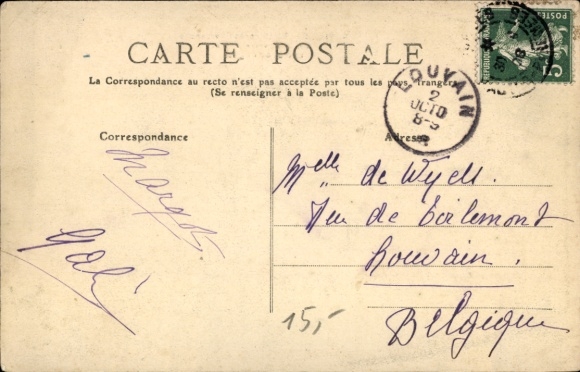 CARTE POSTALE
La Correspondance au recto n'est pas acceptée par tous les pays étrangers
(Se renseigner à la Poste)
LOUVAIN
2
OCTO
8-9
Correspondance
Adresse
Margot
Melle de Wyels.
Rue de Tirlemont
Louvain.
Belgique
15,-